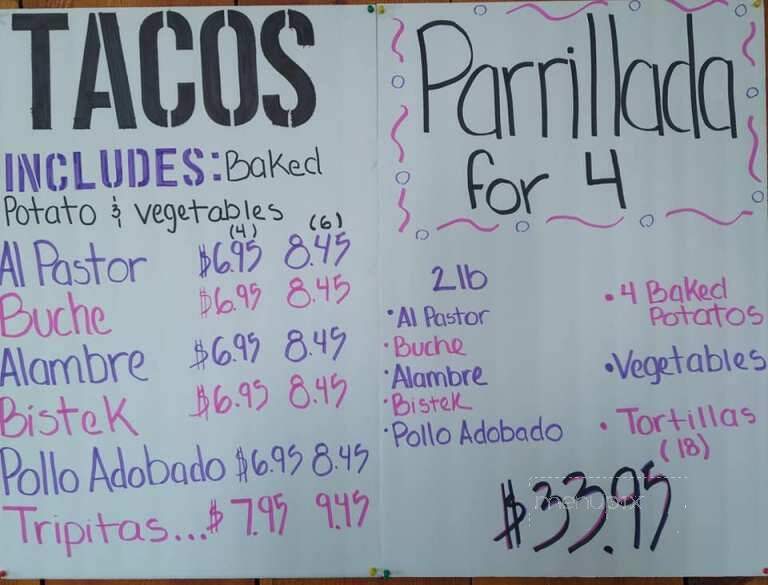 TACOS
INCLUDES: Baked
Potato & vegetables
(4) (6)
Al Pastor $6.95 8.45
Buche $6.95 8.45
Alambre $6.95 8.45
Bistek $6.95 8.45
Pollo Adobado $6.95 8.45
Tripitas...$ 7.95 9.45
Parrillada
for 4
2lb
•Al Pastor
•Buche
•Alambre
•Bistek
•Pollo Adobado
•4 Baked
Potatos
•Vegetables
•Tortillas
(18)
$33.95
menupix